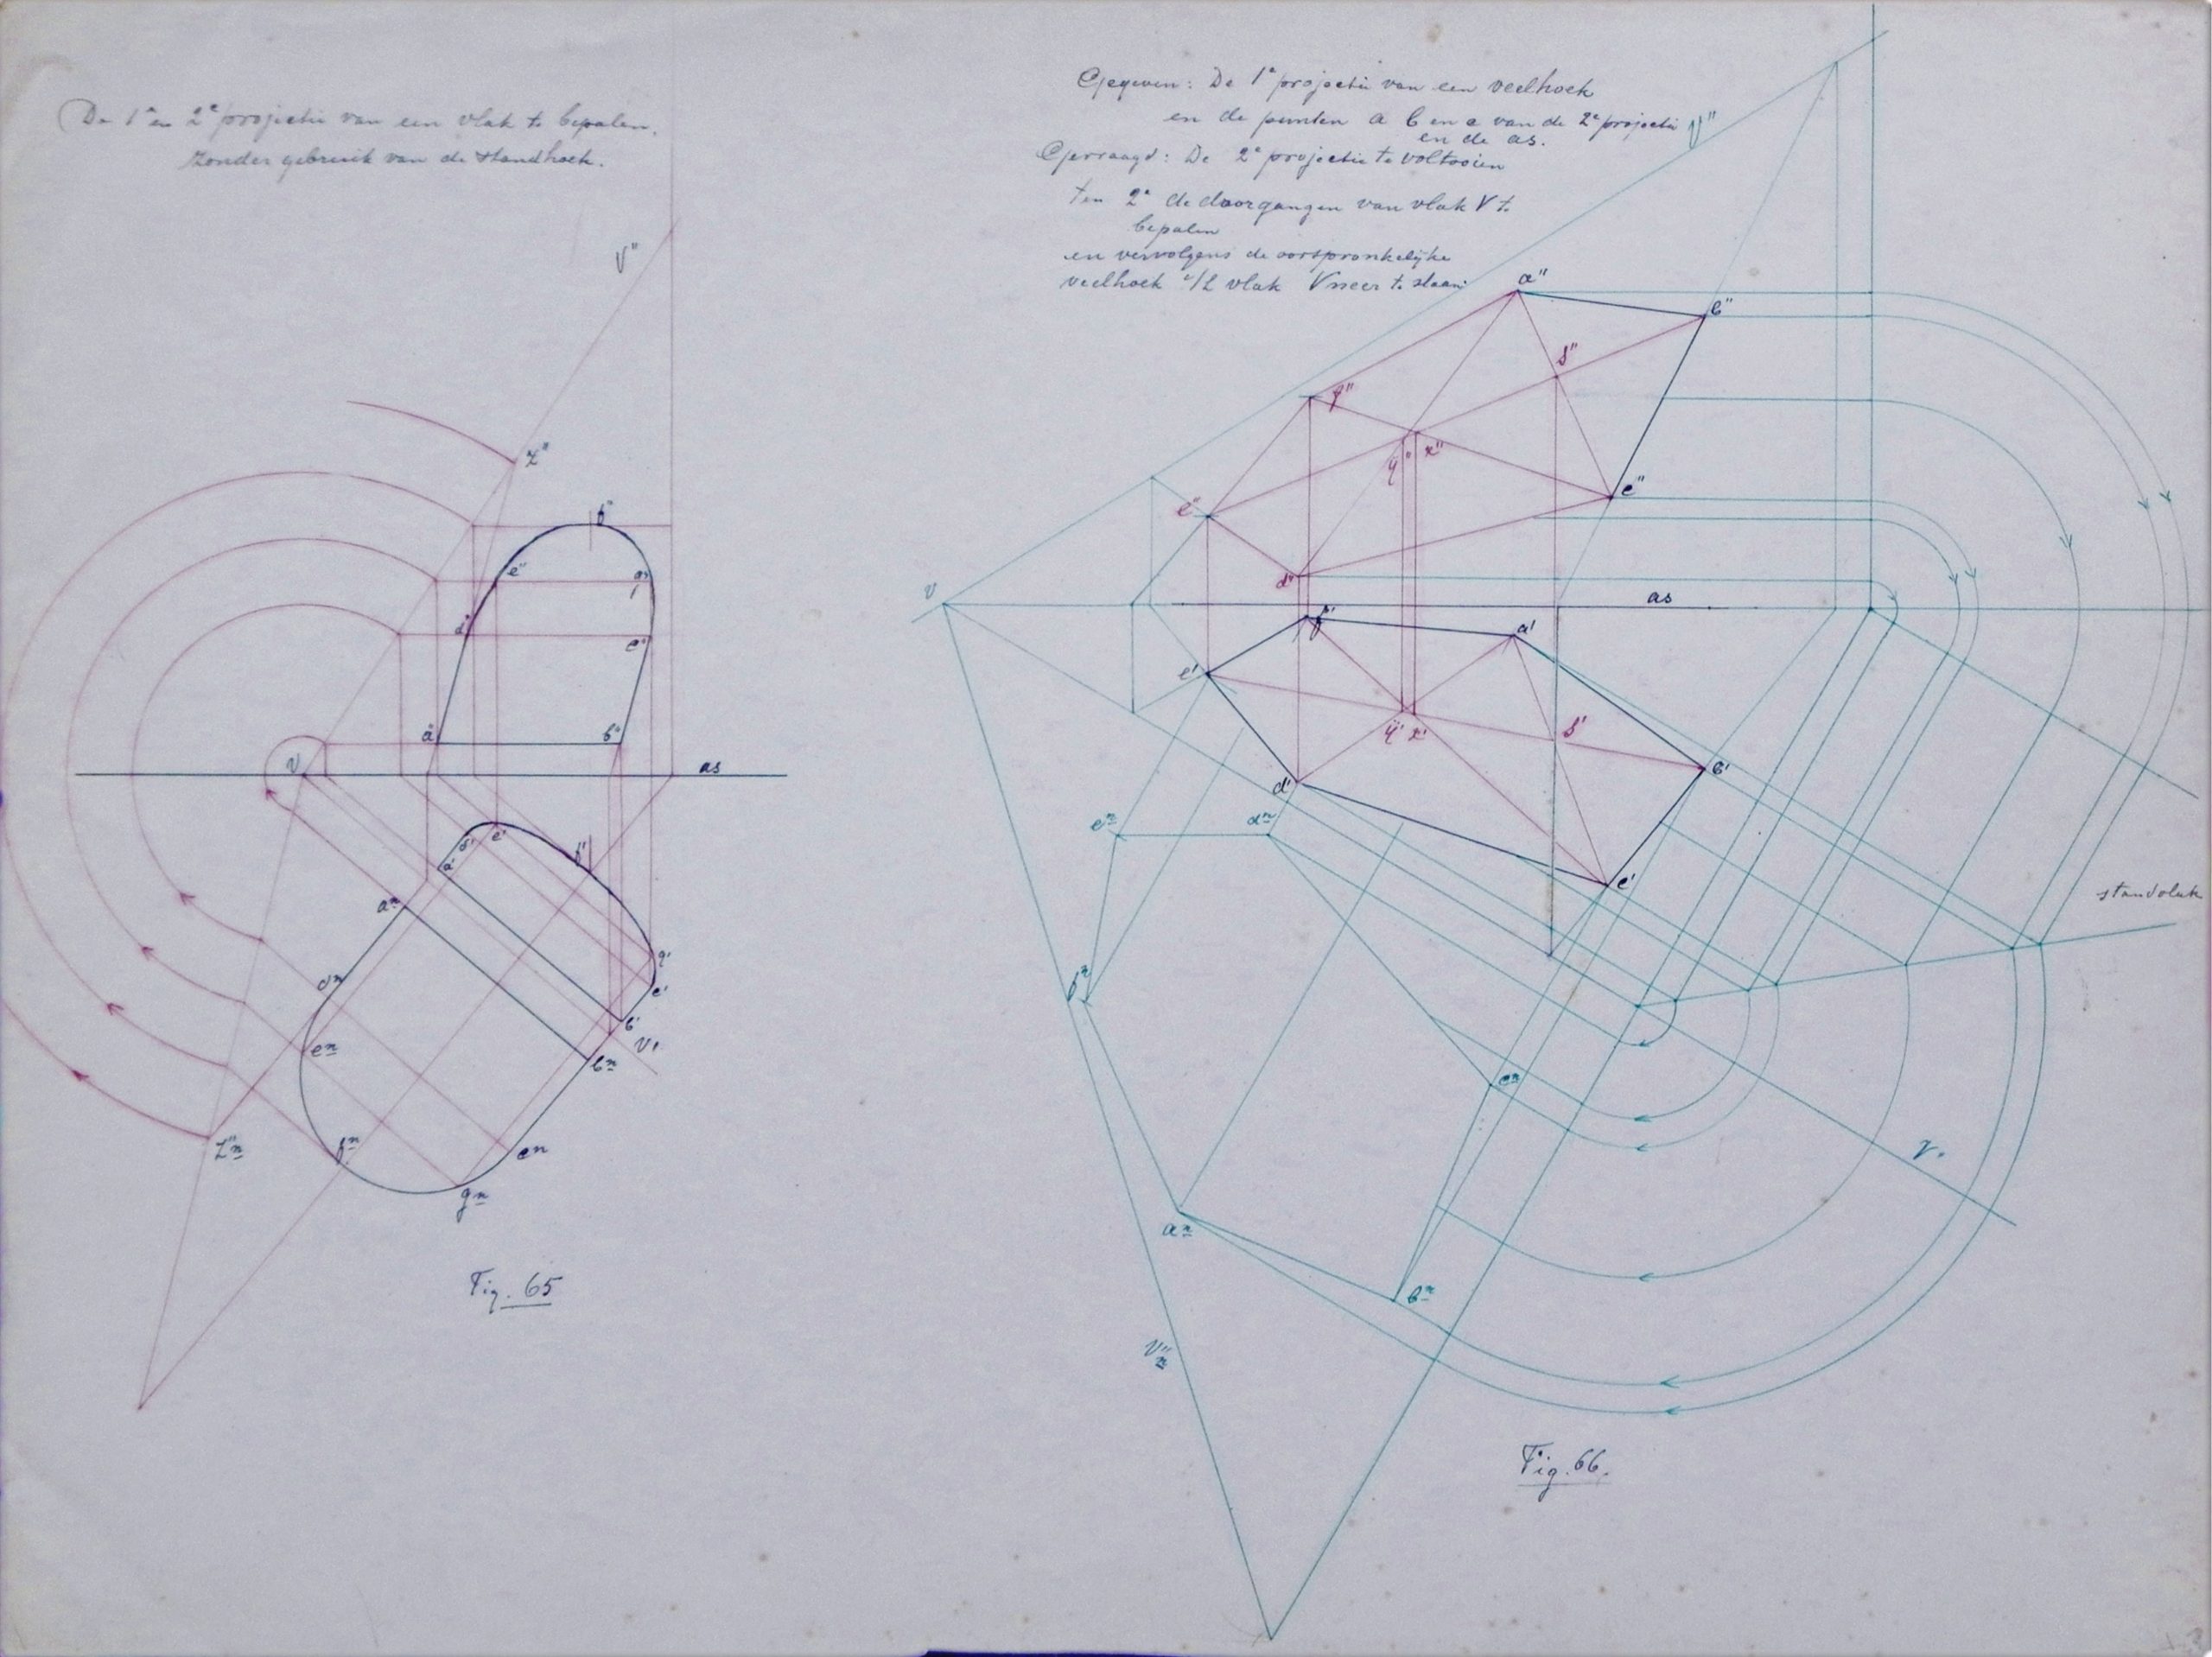 De 1e en 2e projectie van een vlak te bepalen,
zonder gebruik van de standhoek.
V"
z"
f"
e"
g"
d"
c"
a"
b"
v
as
e'
d'
f'
a'
an
g'
c'
dn
b'
V'
en
bn
z"n
fn
cn
gn
Fig. 65
Gegeven: De 1e projectie van een veelhoek
en de punten a b en c van de 2e projectie
en de as.
V"
Gevraagd: De 2e projectie te voltooien
ten 2e de doorgangen van vlak V te
bepalen
en vervolgens de oorspronkelijke
veelhoek i/h vlak V neer te slaan
a"
b"
s"
f"
y"
x"
c"
e"
d"
v
as
f'
a'
e'
y'
x'
s'
b'
d'
c'
en
dn
standvlak
fn
cn
V'
an
bn
V"n
Fig. 66.